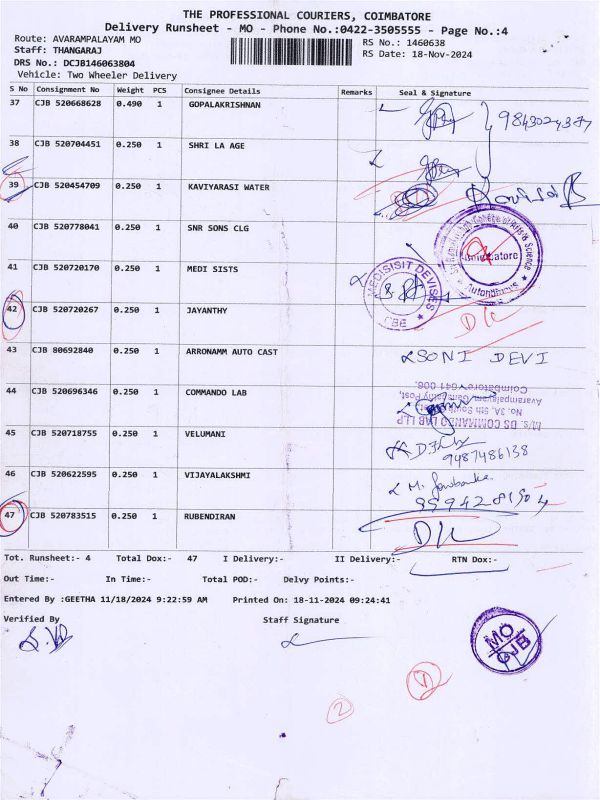 THE PROFESSIONAL COURIERS, COIMBATORE
Delivery Runsheet - MO - Phone No.:0422-3505555 - Page No.:4
Route: AVARAMPALAYAM MO
RS No.: 1460638
Staff: THANGARAJ
RS Date: 18-Nov-2024
DRS No.: DCJB146063804
Vehicle: Two Wheeler Delivery
S No Consignment No Weight PCS Consignee Details Remarks Seal & Signature
37 CJB 520668628 0.490 1 GOPALAKRISHNAN
9843024387
38 CJB 520704451 0.250 1 SHRI LA AGE
39 CJB 520454709 0.250 1 KAVIYARASI WATER
40 CJB 520778041 0.250 1 SNR SONS CLG
Coimbatore
Autonomous
41 CJB 520720170 0.250 1 MEDI SISTS
MEDISISIT DEVISES
CBE
42 CJB 520720267 0.250 1 JAYANTHY
DL
43 CJB 80692840 0.250 1 ARRONAMM AUTO CAST
SONI DEVI
44 CJB 520696346 0.250 1 COMMANDO LAB
M/s. DS COMMANDO LAB LLP
No. 3A, 9th South
Avarampalayam, Ganapathy Post,
Coimbatore-641 006.
45 CJB 520718755 0.250 1 VELUMANI
9487486138
46 CJB 520622595 0.250 1 VIJAYALAKSHMI
9994281504
47 CJB 520783515 0.250 1 RUBENDIRAN
DL
Tot. Runsheet:- 4 Total Dox:- 47 I Delivery:- II Delivery:- RTN Dox:-
Out Time:- In Time:- Total POD:- Delvy Points:-
Entered By :GEETHA 11/18/2024 9:22:59 AM Printed On: 18-11-2024 09:24:41
Verified By Staff Signature
MO
CJB
1
2